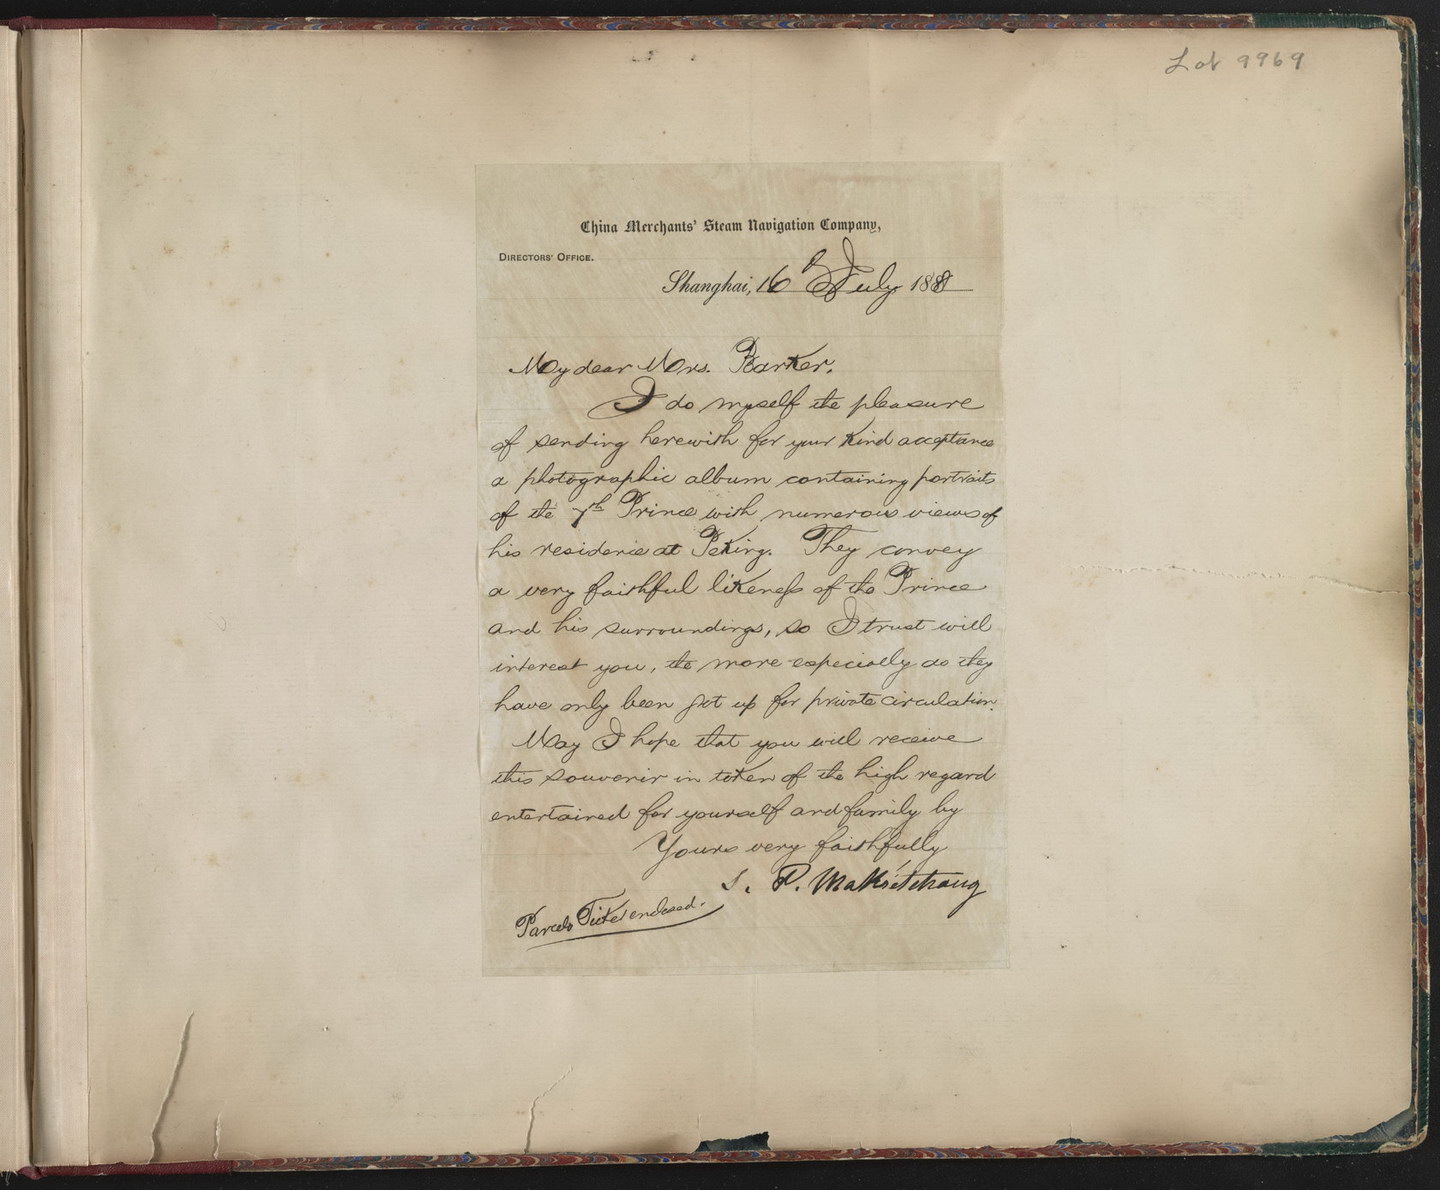 Lot 9969
China Merchants' Steam Navigation Company,
DIRECTORS' OFFICE.
Shanghai, 16th July 1888
My dear Mrs. Parker.
I do myself the pleasure
of sending herewith for your kind acceptance
a photographic album containing portraits
of the 7th Prince with numerous views of
his residence at Peking. They convey
a very faithful likeness of the Prince
and his surroundings, so I trust will
interest you, the more especially as they
have only been got up for private circulation.
May I hope that you will receive
this souvenir in token of the high regard
entertained for yourself and family by
Yours very faithfully
P.
Parcels enclosed.